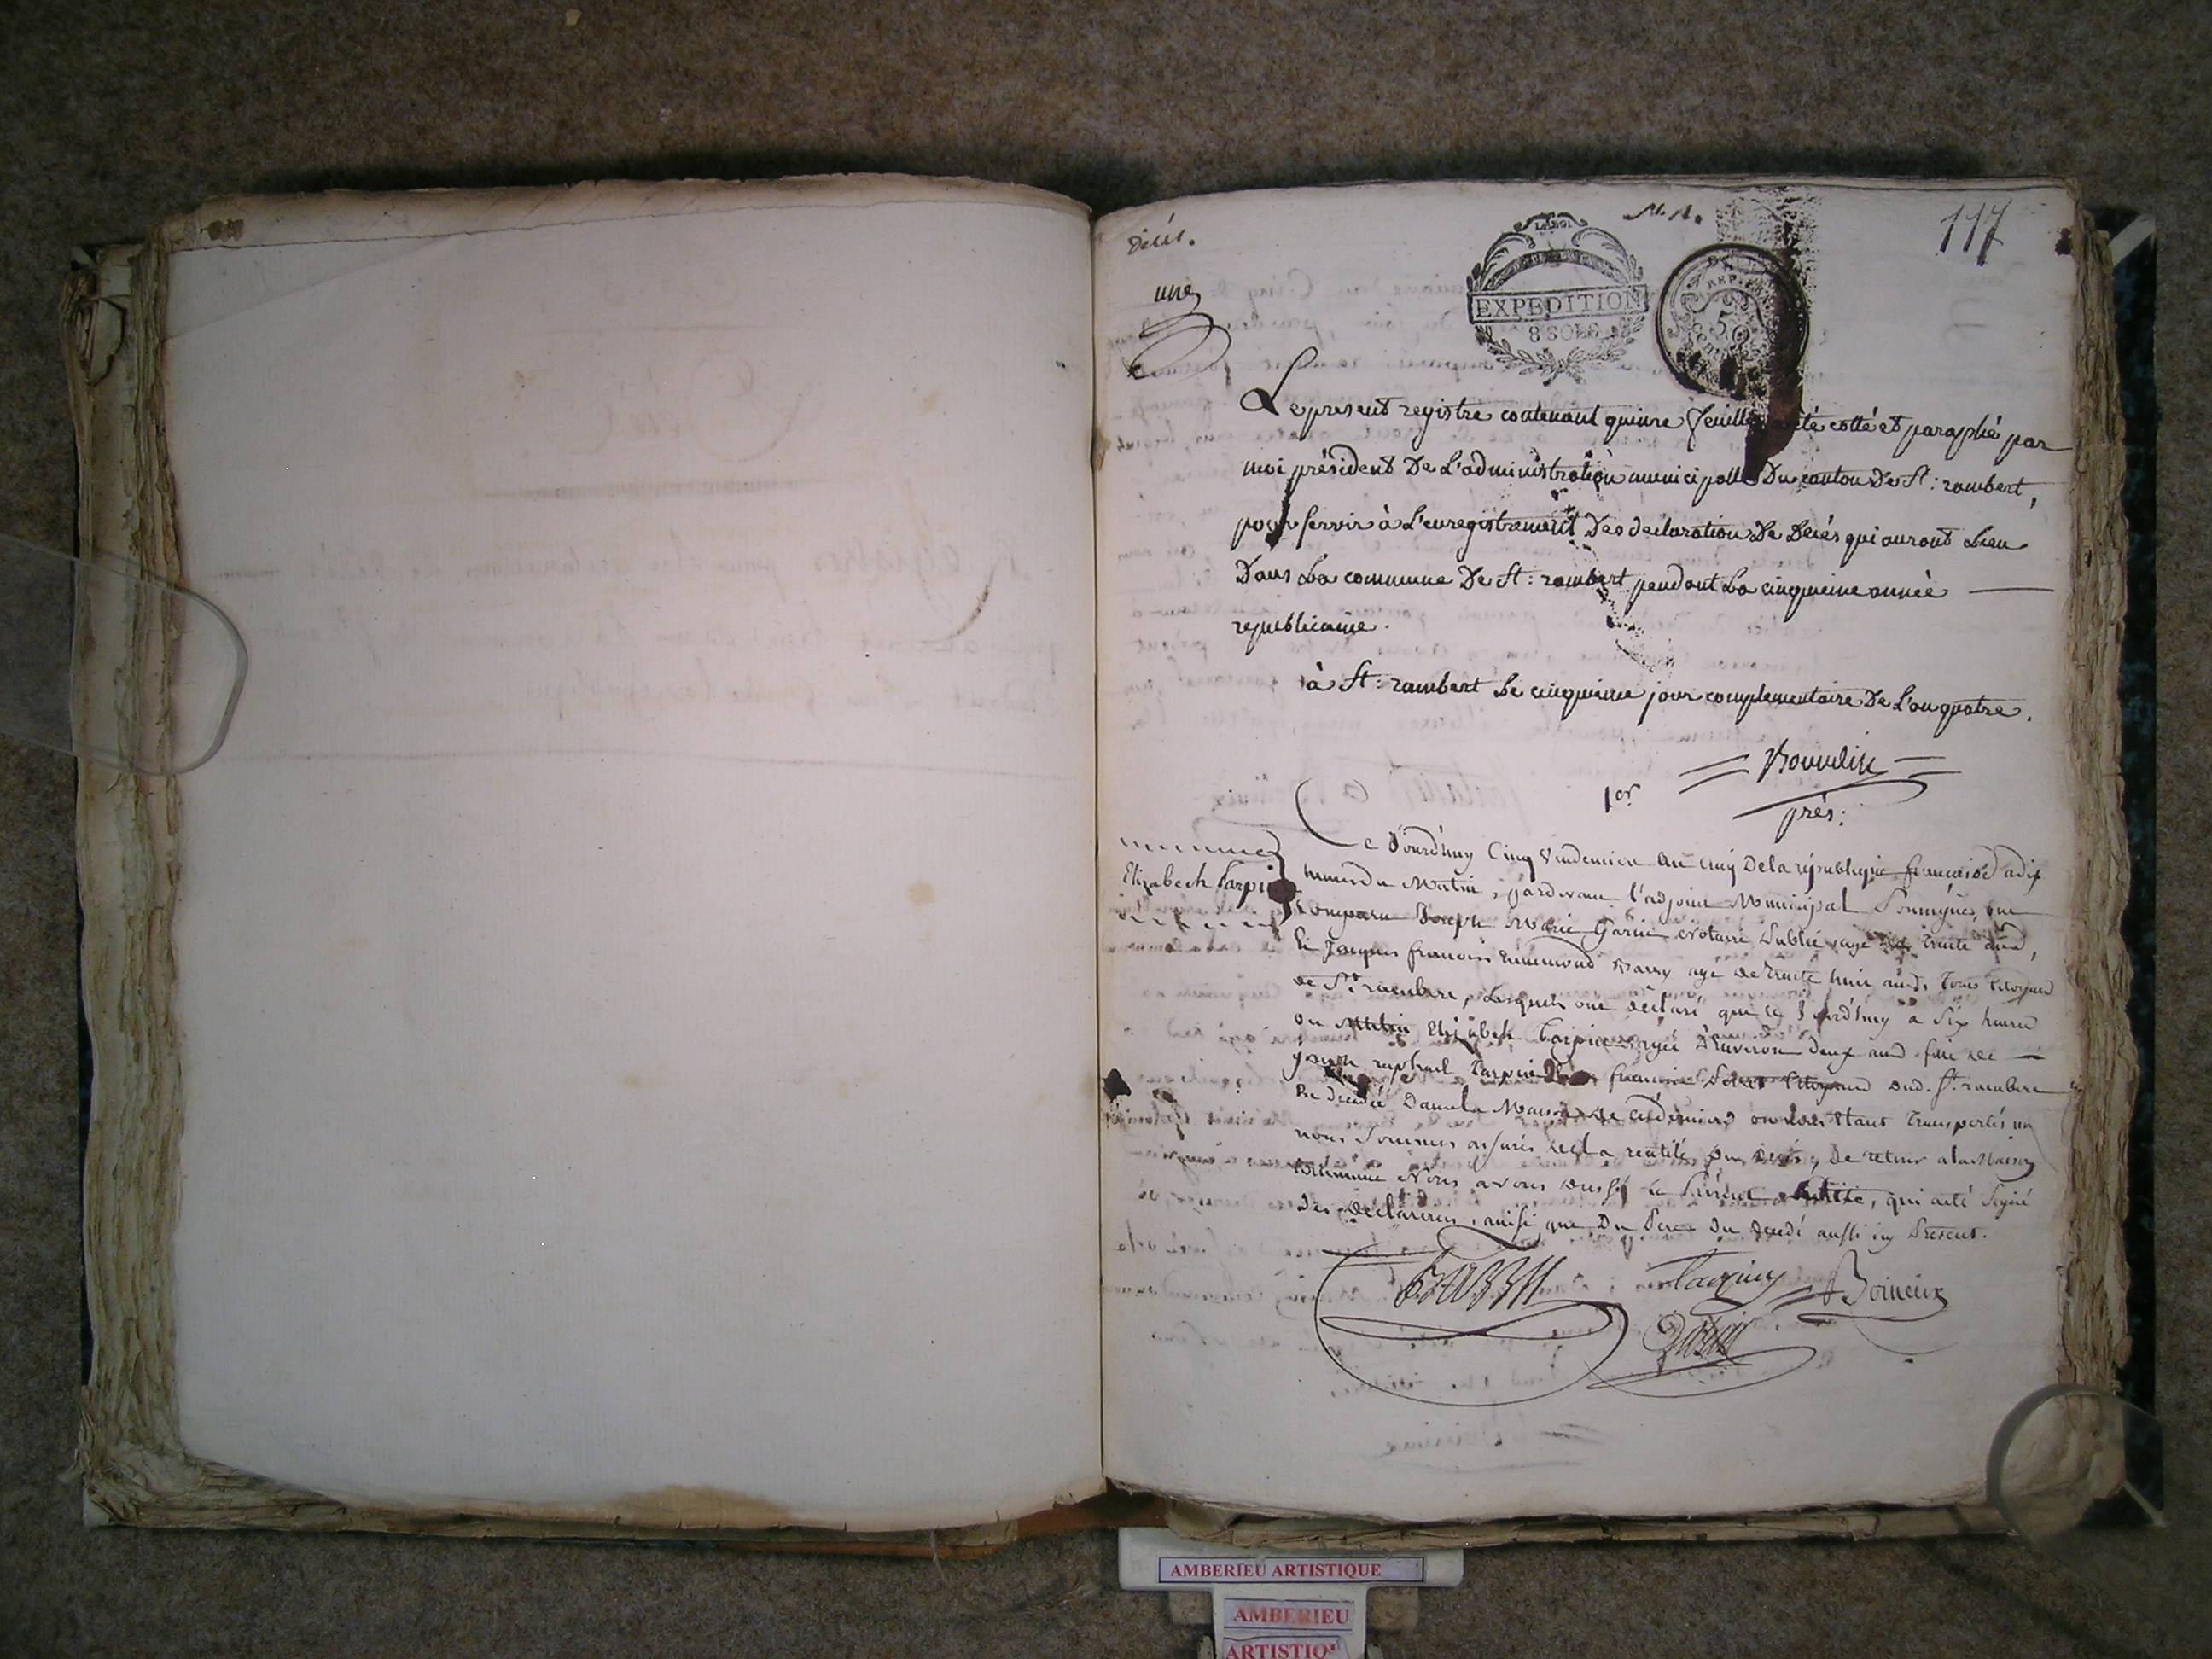 décès.
N. 1.
117
une
LA LOI
EXPEDITION
8 SOLS
REP. FRA
5
Le present registre contenant quinze feuille a été cotté et paraphé par
moi président De L'administration municipalle Du canton De St: rambert,
pour servir à L'enregistrement Des declaration De Décés qui auront Lieu
Dans La commune De St: rambert pendant La cinquieme année
republicaine.
à St: rambert Le cinquieme jour complementaire De L'an quatre.
Bonnelin
prés:
1er
Elizabeth Tarpin
Ce Jourdhuy Cinq Vindemiere an cinq De la république francaise a dix
heures du Matin, pardevant l'adjoint Municipal Soussigné, ont
Comparu Joseph Marie Garin Notaire Public agé de trente ans,
Et Jacques francois Emmond Barry agé de trente huit ans, tous Citoyens
de St rambert, Lesquels ont déclaré que ce Jourdhuy a Six heures
du Matin Elizabeth Tarpin agée d'Environ deux ans fille de
Joseph raphael Tarpin francoise Citoyens dud. St. rambert
Est decedée Dans la Maison de ces derniers ou étant transportés
nous Sommes assurés de la réalité du Décès, De retour a la Maison
Commune Nous avons dressé le Présent Acte, qui a été Signé
des Declarants, ainsi que Du Pere du decedé aussi icy Present.
Barry
Tarpin
Boineux
Garin
AMBERIEU ARTISTIQUE
AMBERIEU
ARTISTIQ